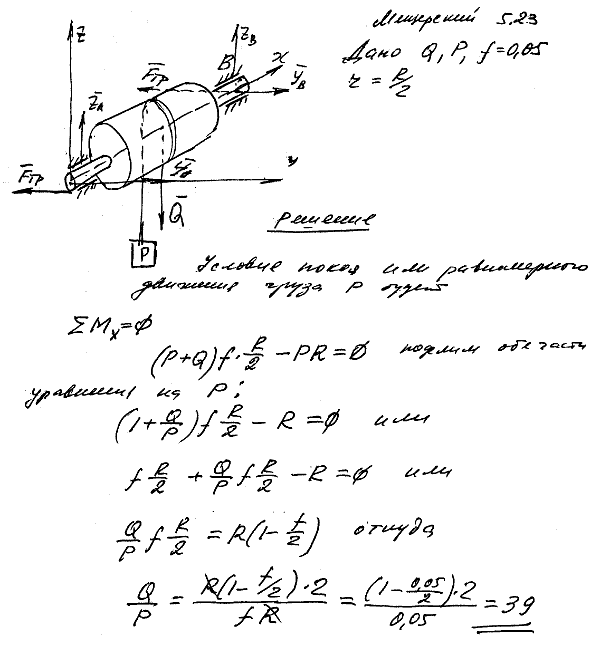 Мещерский 5.23
Дано Q, P, f=0,05
r = R/2
Z
Z̄_B
x
B
F̄тр
Ȳ_B
Z̄_A
F̄тр
y
Q̄
P
Решение
Условие покоя или равномерного
движения груза P будет
ΣMₓ=0
(P+Q)f·R/2 − PR=0 поделим обе части
уравнения на P:
(1+Q/P)f R/2 − R =0 или
f R/2 + Q/P f R/2 − R=0 или
Q/P f R/2 = R(1−f/2) откуда
Q/P = R(1−f/2)·2 / fR = (1−0,05/2)·2 / 0,05 = 39